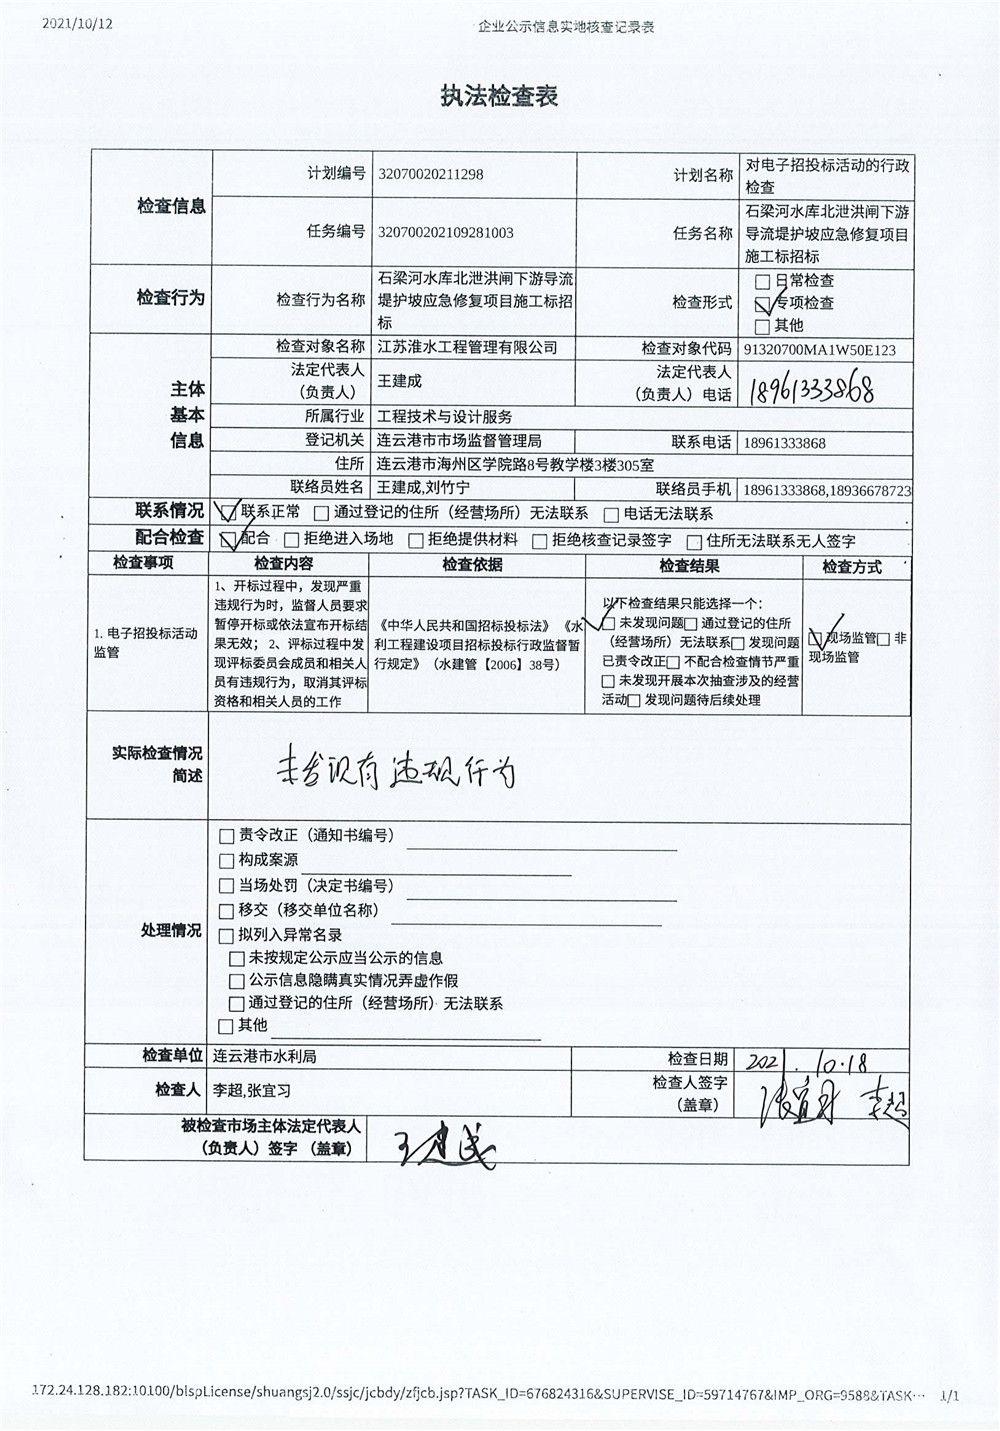 2021/10/12
企业公示信息实地核查记录表
执法检查表
检查信息
计划编号
32070020211298
计划名称
对电子招投标活动的行政
检查
任务编号
320700202109281003
任务名称
石梁河水库北泄洪闸下游
导流堤护坡应急修复项目
施工标招标
检查行为
检查行为名称
石梁河水库北泄洪闸下游导流
堤护坡应急修复项目施工标招
标
检查形式
□日常检查
□专项检查
□其他
主体
基本
信息
检查对象名称
江苏淮水工程管理有限公司
检查对象代码
91320700MA1W50E123
法定代表人
（负责人）
王建成
法定代表人
（负责人）电话
18961333868
所属行业
工程技术与设计服务
登记机关
连云港市市场监督管理局
联系电话
18961333868
住所
连云港市海州区学院路8号教学楼3楼305室
联络员姓名
王建成,刘竹宁
联络员手机
18961333868,18936678723
联系情况
□联系正常 □通过登记的住所（经营场所）无法联系 □电话无法联系
配合检查
□配合 □拒绝进入场地 □拒绝提供材料 □拒绝核查记录签字 □住所无法联系无人签字
检查事项
检查内容
检查依据
检查结果
检查方式
1. 电子招投标活动
监管
1、开标过程中，发现严重
违规行为时，监督人员要求
暂停开标或依法宣布开标结
果无效； 2、评标过程中发
现评标委员会成员和相关人
员有违规行为，取消其评标
资格和相关人员的工作
《中华人民共和国招标投标法》《水
利工程建设项目招标投标行政监督暂
行规定》（水建管【2006】38号）
以下检查结果只能选择一个：
□未发现问题□通过登记的住所
（经营场所）无法联系□发现问题
已责令改正□不配合检查情节严重
□未发现开展本次抽查涉及的经营
活动□发现问题待后续处理
□现场监管□非
现场监管
实际检查情况
简述
未发现有违规行为
处理情况
□责令改正（通知书编号）
□构成案源
□当场处罚（决定书编号）
□移交（移交单位名称）
□拟列入异常名录
□未按规定公示应当公示的信息
□公示信息隐瞒真实情况弄虚作假
□通过登记的住所（经营场所）无法联系
□其他
检查单位
连云港市水利局
检查日期
2021.10.18
检查人
李超,张宜习
检查人签字
（盖章）
张宜习 李超
被检查市场主体法定代表人
（负责人）签字 （盖章）
王建成
172.24.128.182:10100/blspLicense/shuangsj2.0/ssjc/jcbdy/zfjcb.jsp?TASK_ID=676824316&SUPERVISE_ID=59714767&IMP_ORG=9588&TASK… 1/1